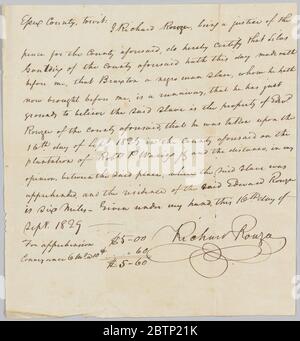 Essex County, towit: I Richard Rouze, being a justice of the
peace for the County aforesaid, do hereby certify that Silas
Gouldig of the County aforesaid hath this day made oath
before me, that Braxton a negro man slave, whom he hath
now brought before me, is a runaway, that he has just
grounds to believe the said slave is the property of Edwd
Rouzee of the county aforesaid, that he was taken upon the
16th day of Sept 1829 in the County aforesaid on the
plantation of Robt P Waring and the distance, in my
opinion, between the said place, where the said slave was
apprehended, and the residence of the said Edward Rouzee
is six miles - Given under my hand, this 16th day of
Sept. 1829
For apprehension $5-00
Conveyance 6 Mls .60
$5-60
Richard Rouze
alamy
Image ID: 2BTP21K
www.alamy.com